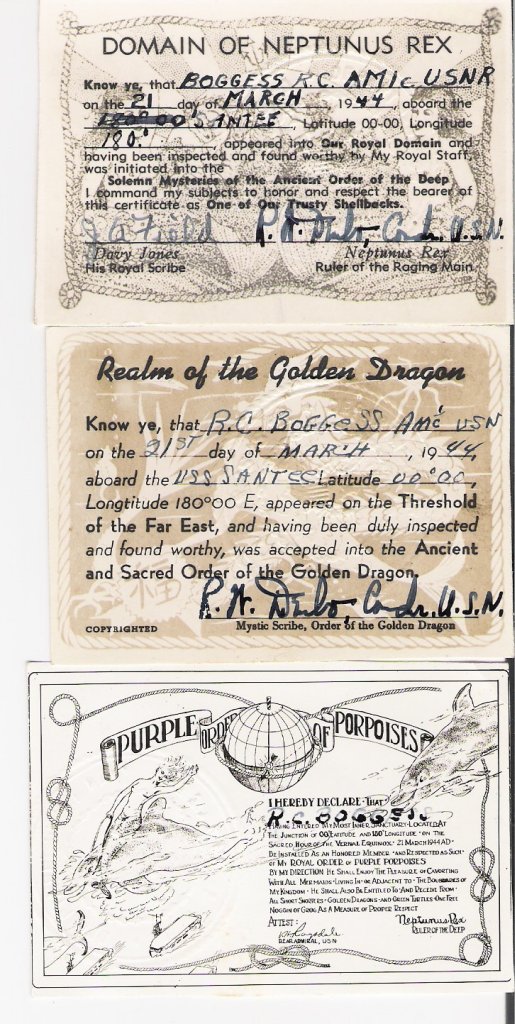 DOMAIN OF NEPTUNUS REX
Know ye, that BOGGESS R.C. AM1c USNR
on the 21 day of MARCH, 1944, aboard the
SANTEE, Latitude 00-00, Longitude
180.° appeared into Our Royal Domain and
having been inspected and found worthy by My Royal Staff,
was initiated into the
Solemn Mysteries of the Ancient Order of the Deep
I command my subjects to honor and respect the bearer of
this certificate as One of Our Trusty Shellbacks.
J G Field Comdr. U.S.N.
Davy Jones Neptunus Rex
His Royal Scribe Ruler of the Raging Main
Realm of the Golden Dragon
Know ye, that R.C. BOGGESS AM1c USN
on the 21ST day of MARCH, 1944,
aboard the USS SANTEE Latitude 00°00,
Longtitude 180°00 E, appeared on the Threshold
of the Far East, and having been duly inspected
and found worthy, was accepted into the Ancient
and Sacred Order of the Golden Dragon.
Comdr. U.S.N.
COPYRIGHTED Mystic Scribe, Order of the Golden Dragon
PURPLE ORDER OF PORPOISES
I HEREBY DECLARE THAT
R.C. BOGGESS
HAVING ENTERED MY MOST INNER SANCTUARY LOCATED AT
THE JUNCTION OF 00 LATITUDE AND 180° LONGITUDE ON THE
SACRED HOUR OF THE VERNAL EQUINOX 21 MARCH 1944 AD
BE INSTALLED AS AN HONORED MEMBER AND RESPECTED AS SUCH
OF MY ROYAL ORDER OF PURPLE PORPOISES
BY MY DIRECTION HE SHALL ENJOY THE PLEASURE OF CAVORTING
WITH ALL MERMAIDS LIVING IN OR ADJACENT TO THE BOUNDARIES OF
MY KINGDOM HE SHALL ALSO BE ENTITLED TO AND RECEIVE FROM
ALL SHORT SNORTERS GOLDEN DRAGONS AND GREEN TURTLES ONE FREE
NOGGIN OF GROG AS A MEASURE OF PROPER RESPECT
ATTEST: Neptunus Rex
Ragsdale RULER OF THE DEEP
REAR ADMIRAL, USN